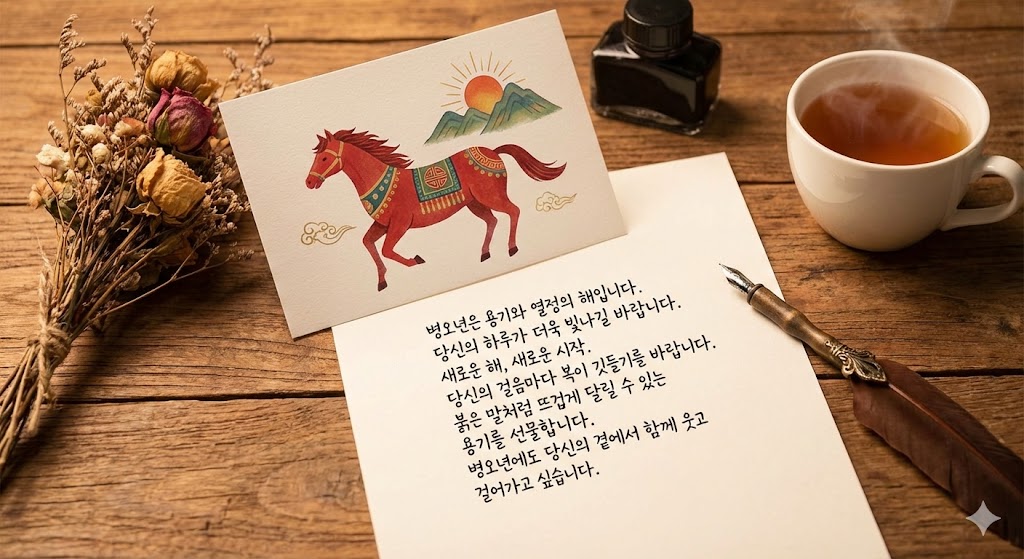 병오년은 용기와 열정의 해입니다.
당신의 하루가 더욱 빛나길 바랍니다.
새로운 해, 새로운 시작.
당신의 걸음마다 복이 깃들기를 바랍니다.
붉은 말처럼 뜨겁게 달릴 수 있는
용기를 선물합니다.
병오년에도 당신의 곁에서 함께 웃고
걸어가고 싶습니다.